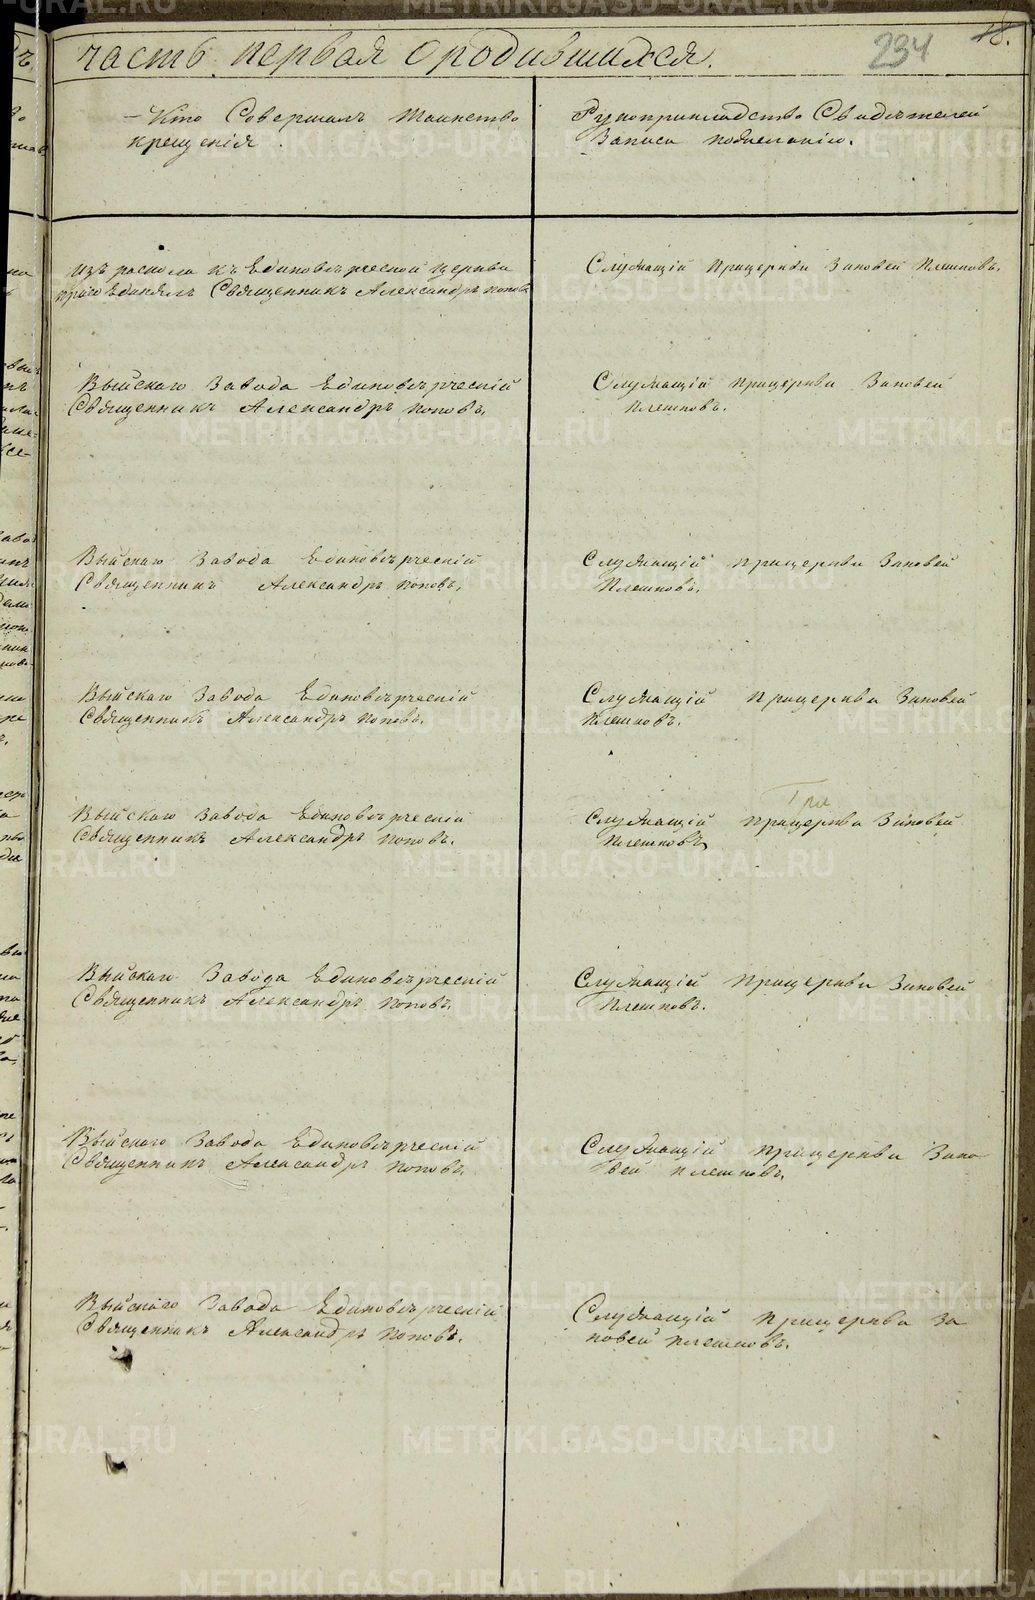 часть первая о родившихся.
234
18.
Кто Совершалъ Таинство
крещенія.
Рукоприкладство Свидѣтелей
Записи по желанію.
изъ раскола къ Единовѣрческой церкви
присоединялъ Священникъ Александръ Поповъ
Служащій при церкви Зиновей Плешковъ.
Выйскаго Завода Единовѣрческій
Священникъ Александръ Поповъ.
Служащій при церкви Зиновей
Плешковъ.
Выйскаго Завода Единовѣрческій
Священникъ Александръ Поповъ.
Служащій при церкви Зиновей
Плешковъ.
Выйскаго Завода Единовѣрческій
Священникъ Александръ Поповъ.
Служащій при церкви Зиновей
Плешковъ.
Выйскаго Завода Единовѣрческій
Священникъ Александръ Поповъ.
Три
Служащій при церкви Зиновей
Плешковъ
Выйскаго Завода Единовѣрческій
Священникъ Александръ Поповъ.
Служащій при церкви Зиновей
Плешковъ.
Выйскаго Завода Единовѣрческій
Священникъ Александръ Поповъ
Служащій при церкви Зино
вей Плешковъ.
Выйскаго Завода Единовѣрческій
Священникъ Александръ Поповъ.
Служащій при церкви Зи
новей Плешковъ.
METRIKI.GASO-URAL.RU